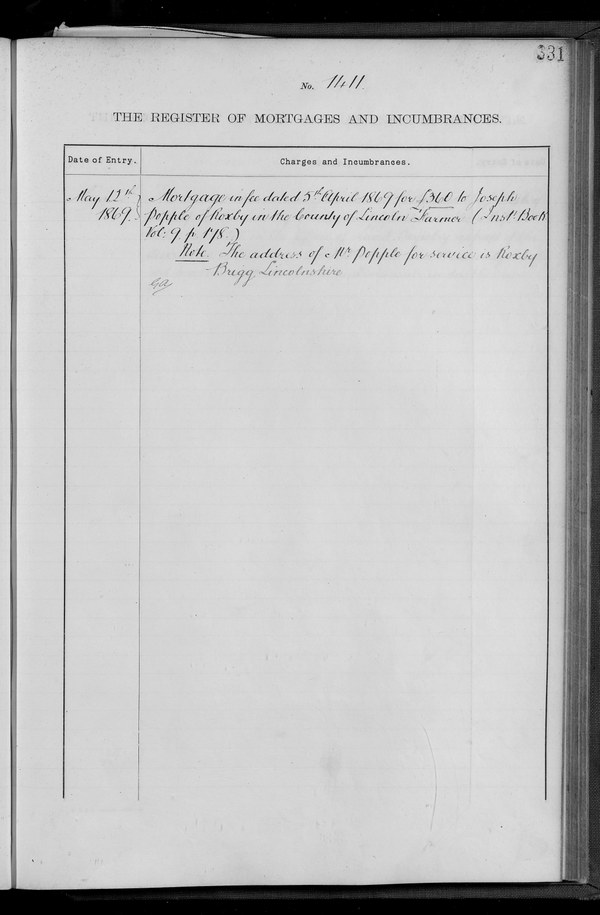 331
No. 1411.
THE REGISTER OF MORTGAGES AND INCUMBRANCES.
Date of Entry.
Charges and Incumbrances.
May 12th 1869.
Mortgage in fee dated 5th April 1869 for £360 to Joseph
Popple of Roxby in the County of Lincoln Farmer (Inst. Book
Vol: 9 p. 178.)
Note. The address of Mr. Popple for service is Roxby
Brigg, Lincolnshire